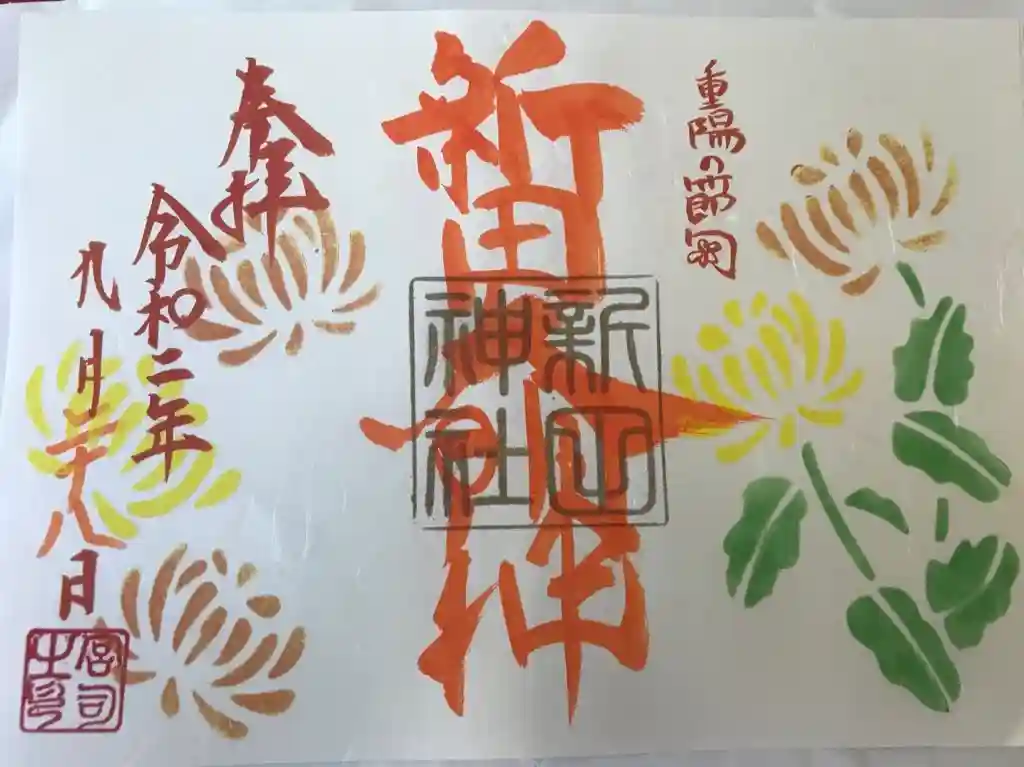 重陽の節句
新田大明神
新田
神社
奉拝
令和二年
九月二十八日
宮司
之印